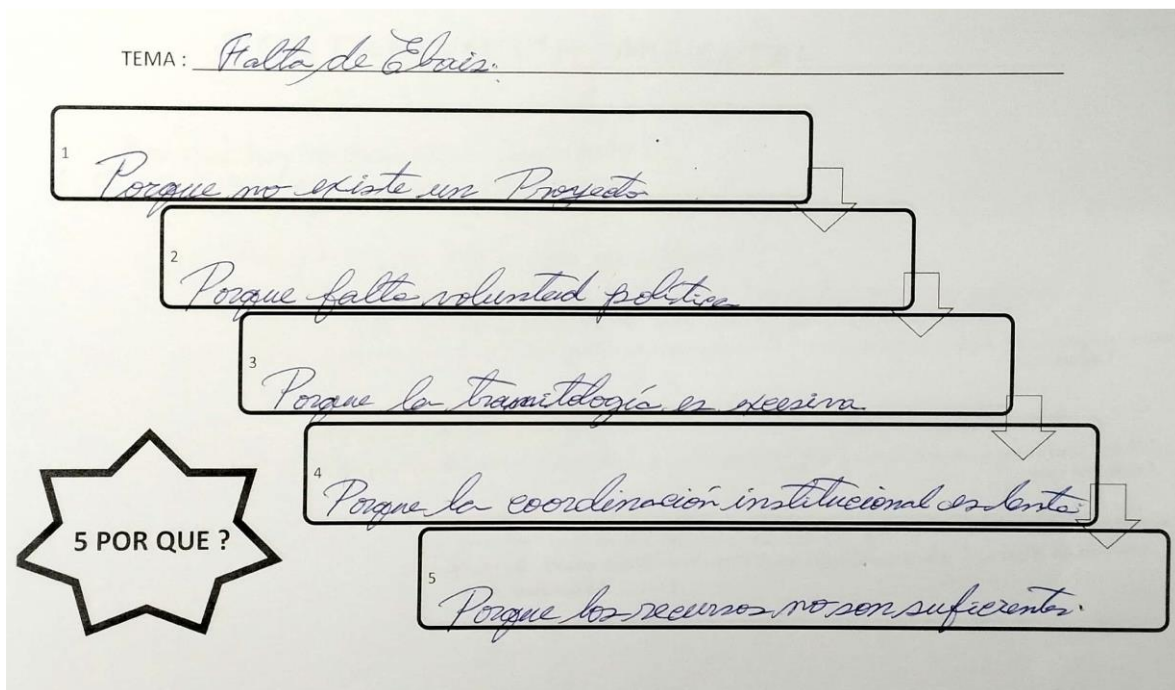 TEMA : Falta de Ebais.
1 Porque no existe un Proyecto
2 Porque falta voluntad politica
3 Porque la tramitología es excesiva.
4 Porque la coordinación institucional es lenta.
5 Porque los recursos no son suficientes.
5 POR QUE ?